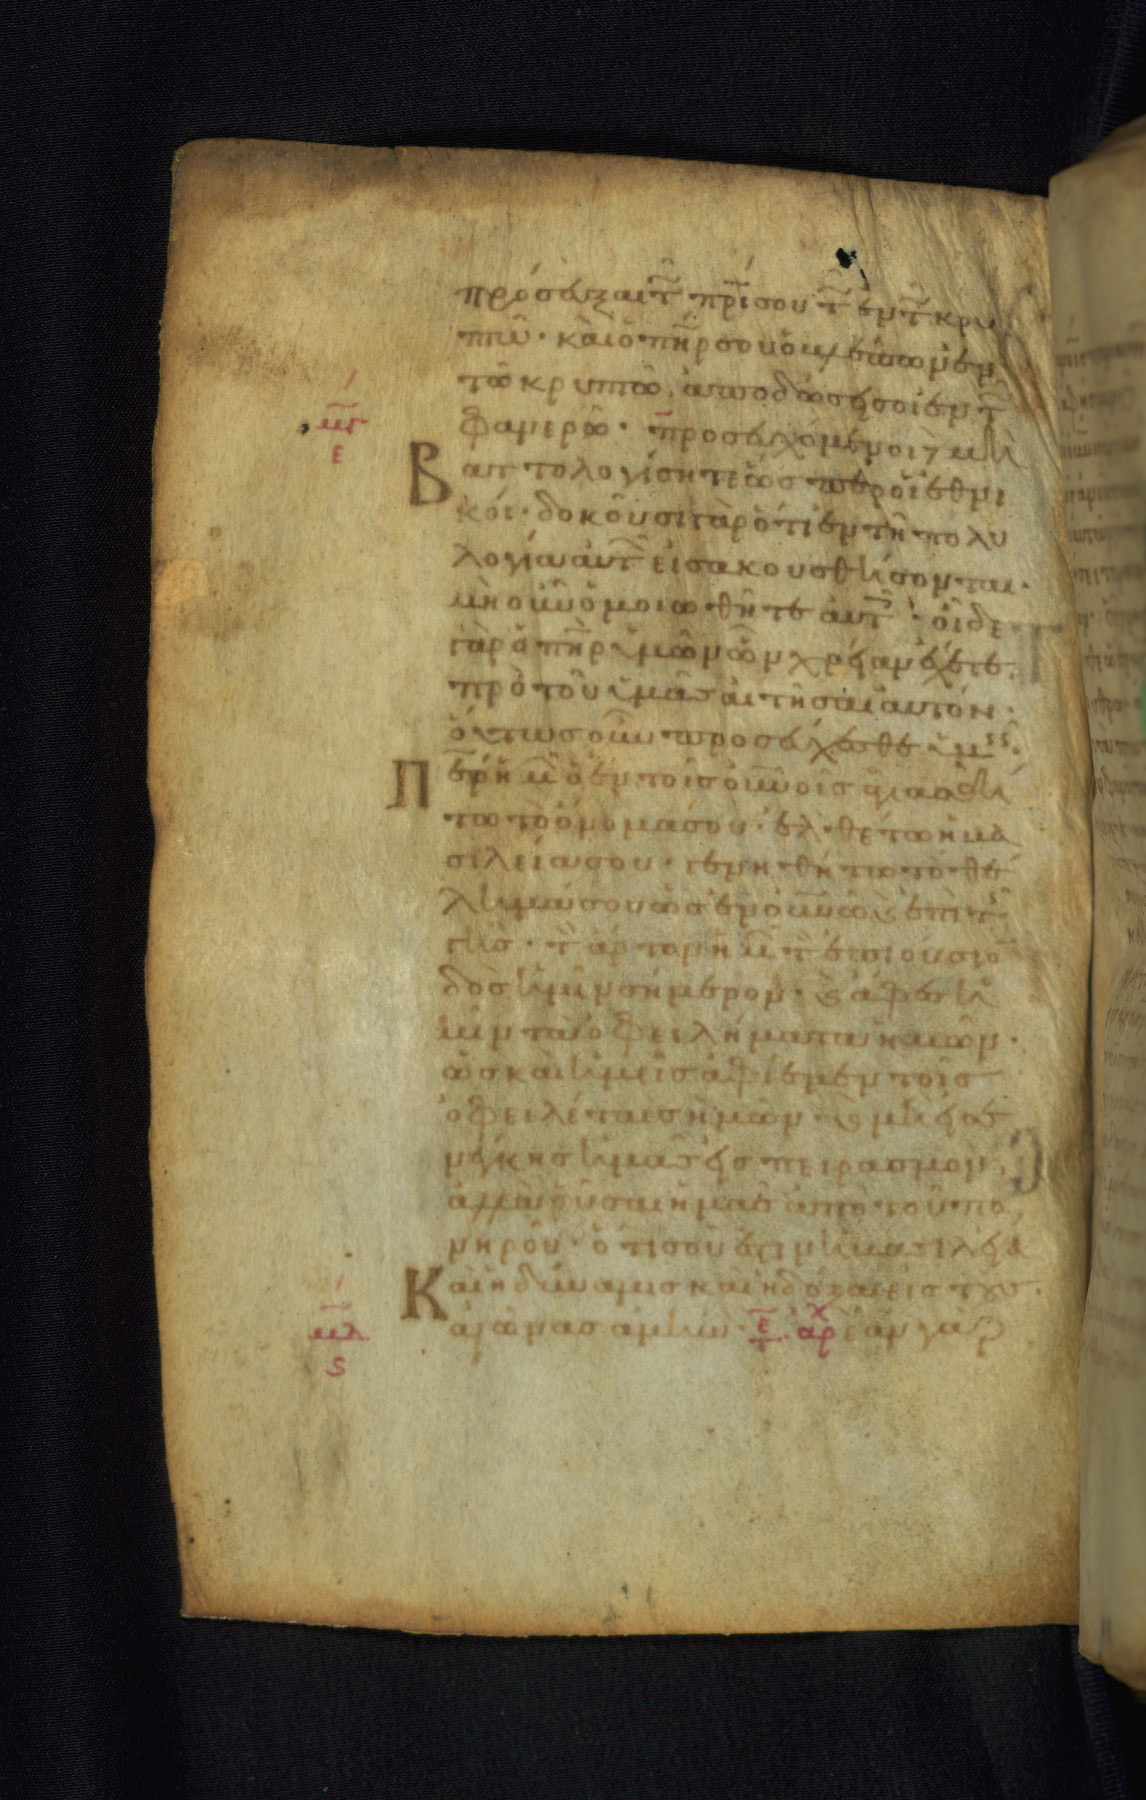 πρόσευξαι τῶ πρί σου τῶ ἐν τῶ κρυ
πτῶ· καὶ ὁ πηρ σου ὁ βλέπων ἐν
τῶ κρυπτῶ, ἀποδώσει σοι ἐν τῶ
φανερῶ· προσευχόμενοι δὲ μὴ
Βαττολογίσητε ὥσπερ οἱ ἐθνι
κοί· δοκοῦσι γὰρ ὅτι ἐν τῆ πολυ
λογία αὐτῶν εἰσακουσθήσονται·
μὴ οὖν ὁμοιωθῆτε αὐτοῖς· οἶδε
γὰρ ὁ πηρ ὑμῶν ὧν χρείαν ἔχετε
πρὸ τοῦ ὑμᾶς αἰτῆσαι αὐτόν·
οὕτως οὖν προσεύχεσθε ὑμεῖς·
Περ ἡμῶν ὁ ἐν τοῖς οὐνοις ἁγιασθή
τω τὸ ὄνομά σου· ἐλθέτω ἡ βα
σιλεία σου· γενηθήτω τὸ θέ
λημά σου ὡς ἐν οὐνω καὶ ἐπὶ τῆς
γῆς· τὸν ἄρτον ἡμῶν τὸν ἐπιούσιον
δὸς ἡμῖν σήμερον· καὶ ἄφες ἡ
μῖν τὰ ὀφειλήματα ἡμῶν·
ὡς καὶ ἡμεῖς ἀφίεμεν τοῖς
ὀφειλέταις ἡμῶν· καὶ μὴ εἰσε
νέγκης ἡμᾶς εἰς πειρασμόν,
ἀλλὰ ῥῦσαι ἡμᾶς ἀπὸ τοῦ πο
νηροῦ· ὅτι σοῦ ἐστιν ἡ βασιλεία
Καὶ ἡ δύναμις καὶ ἡ δόξα εἰς τοὺς
αἰῶνας ἀμήν· ἐὰν γὰρ